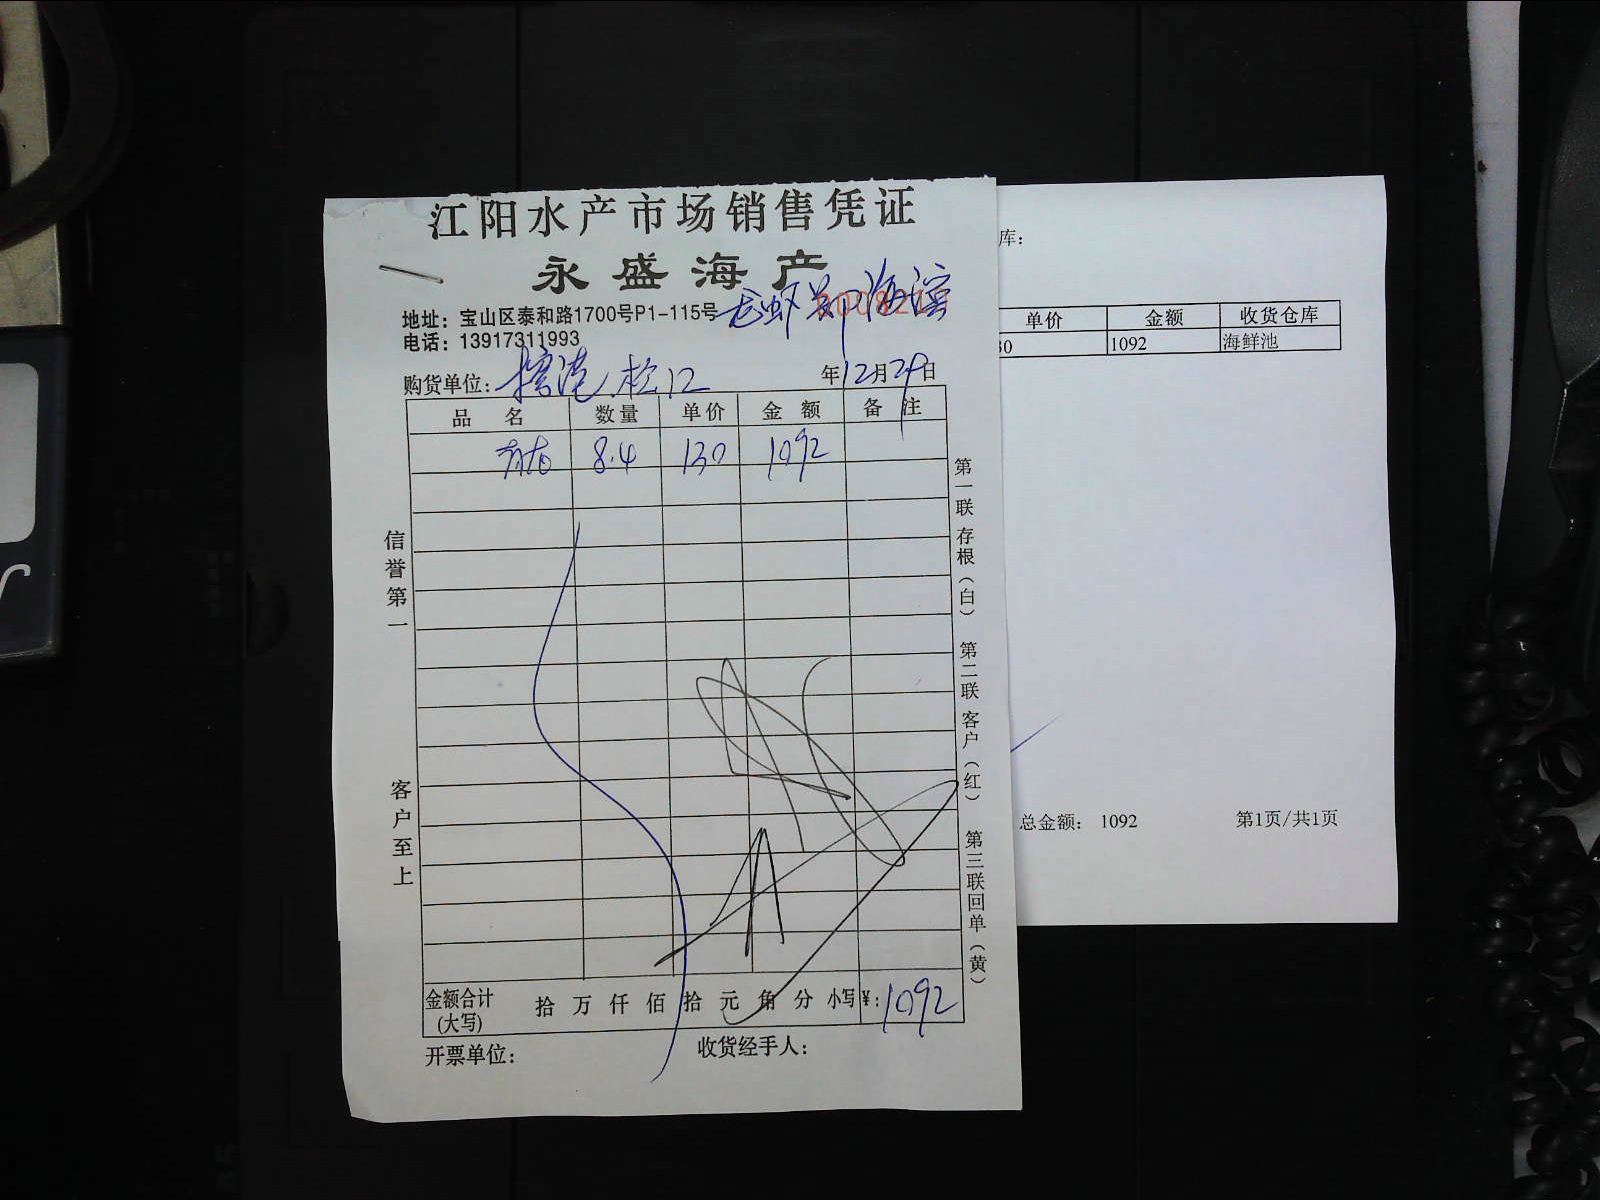 江阳水产市场销售凭证
永盛海产
地址：宝山区泰和路1700号P1-115号
龙虾 郑海滨
电话：13917311993
购货单位： 松江
年12月29日
品 名 数量 单价 金 额 备 注
青龙 8.4 130 1092
信誉第一
客户至上
第一联 存根（白） 第二联 客户（红） 第三联回单（黄）
金额合计 拾 万 仟 佰 拾 元 角 分 小写 ¥：1092
(大写)
开票单位： 收货经手人：
库：
单价 金额 收货仓库
30 1092 海鲜池
总金额： 1092 第1页/共1页